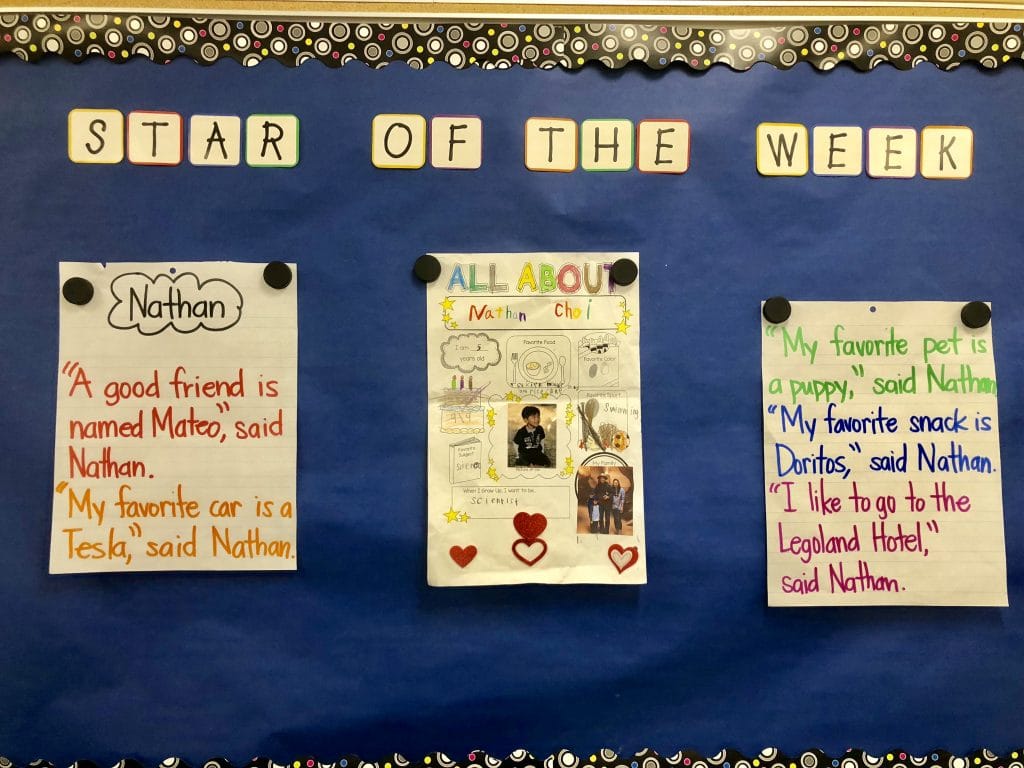 STAR OF THE WEEK
Nathan
"A good friend is
named Mateo," said
Nathan.
"My favorite car is a
Tesla," said Nathan.
ALL ABOUT
Nathan Choi
I am 5
years old
Favorite Food
Favorite Color
Favorite Sport
Swimming
Favorite
Subject
My Family
When I Grow Up, I want to be...
scientist
"My favorite pet is
a puppy," said Nathan
"My favorite snack is
Doritos," said Nathan.
"I like to go to the
Legoland Hotel,"
said Nathan.